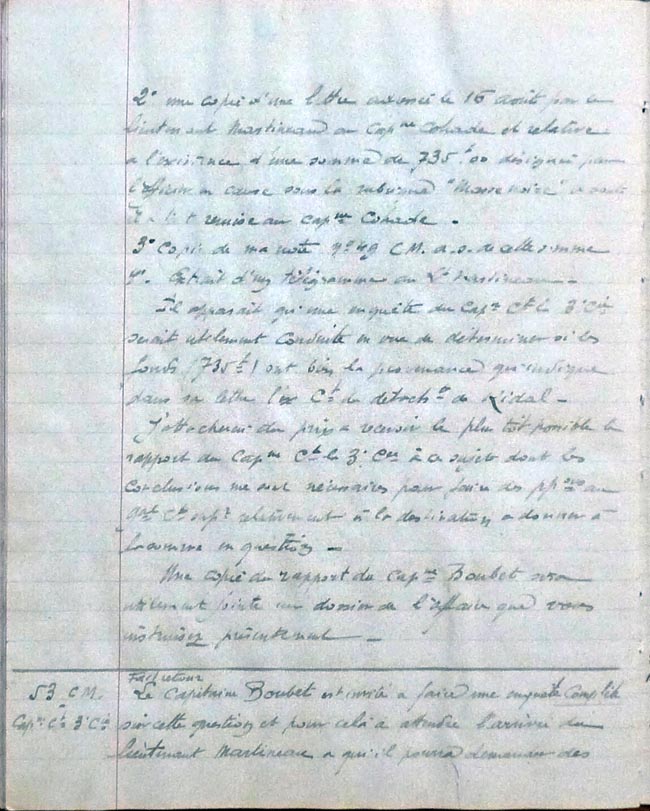 2° une copie d'une lettre adressée le 16 août par le
lieutenant Martineau au Capne Cohade et relative
à l'existence d'une somme de 735f 00 désignée par
l'officier en cause sous la rubrique "Masse noire" et
remise au capne Cohade.
3° Copie de ma note n° 49 C.M. a.s. de cette somme
4°. Extrait d'un télégramme au Lt Martineau.
Il apparait qu'une enquête du Capne Ct la 3e Cie
serait utilement conduite en vue de déterminer si les
fonds (735f) ont bien la provenance qu'indique
dans sa lettre l'ex Ct du détacht de Kidal.
J'attacherai du prix à recevoir le plus tôt possible le
rapport du Capne Ct la 3e Cie à ce sujet dont les
conclusions me sont nécessaires pour faire des ppons au
Ct supr relativement à la destination à donner à
la somme en question.
Une copie du rapport du Capne Boubet sera
utilement jointe au dossier de l'affaire que vous
instruisez présentement.
Fait retour
53 C.M. Le Capitaine Boubet est invité à faire une enquête complète
Capne Ct 3e Cie sur cette question et pour cela à attendre l'arrivée du
lieutenant Martineau à qui il pourra demander des